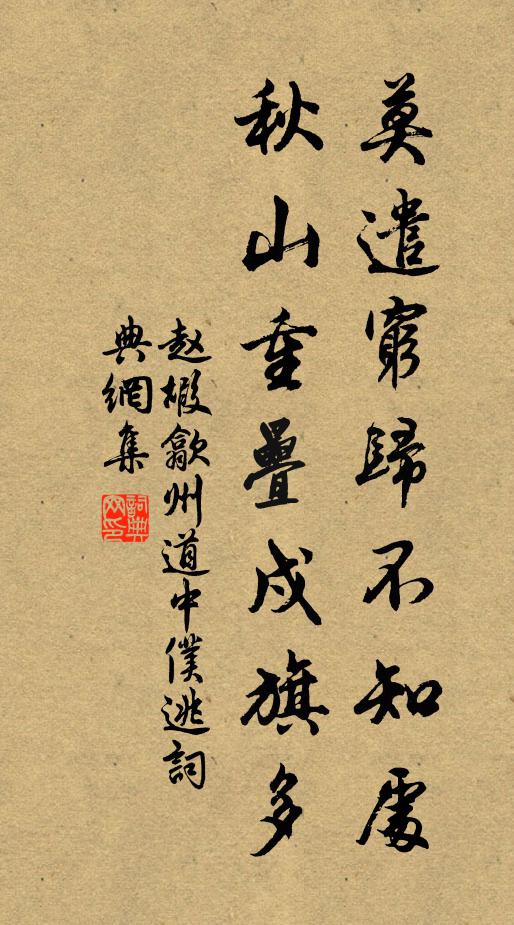 莫遣窮歸不知處
秋山重疊戍旗多
赵嘏歙州道中僕逃詞
典網集
詞典
网印